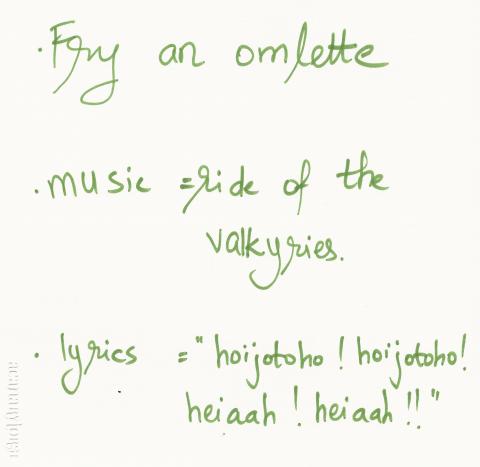 . Fry an omlette
. music = ride of the
valkyries.
. lyrics = " hoijotoho ! hoijotoho!
heiaah ! heiaah !! "